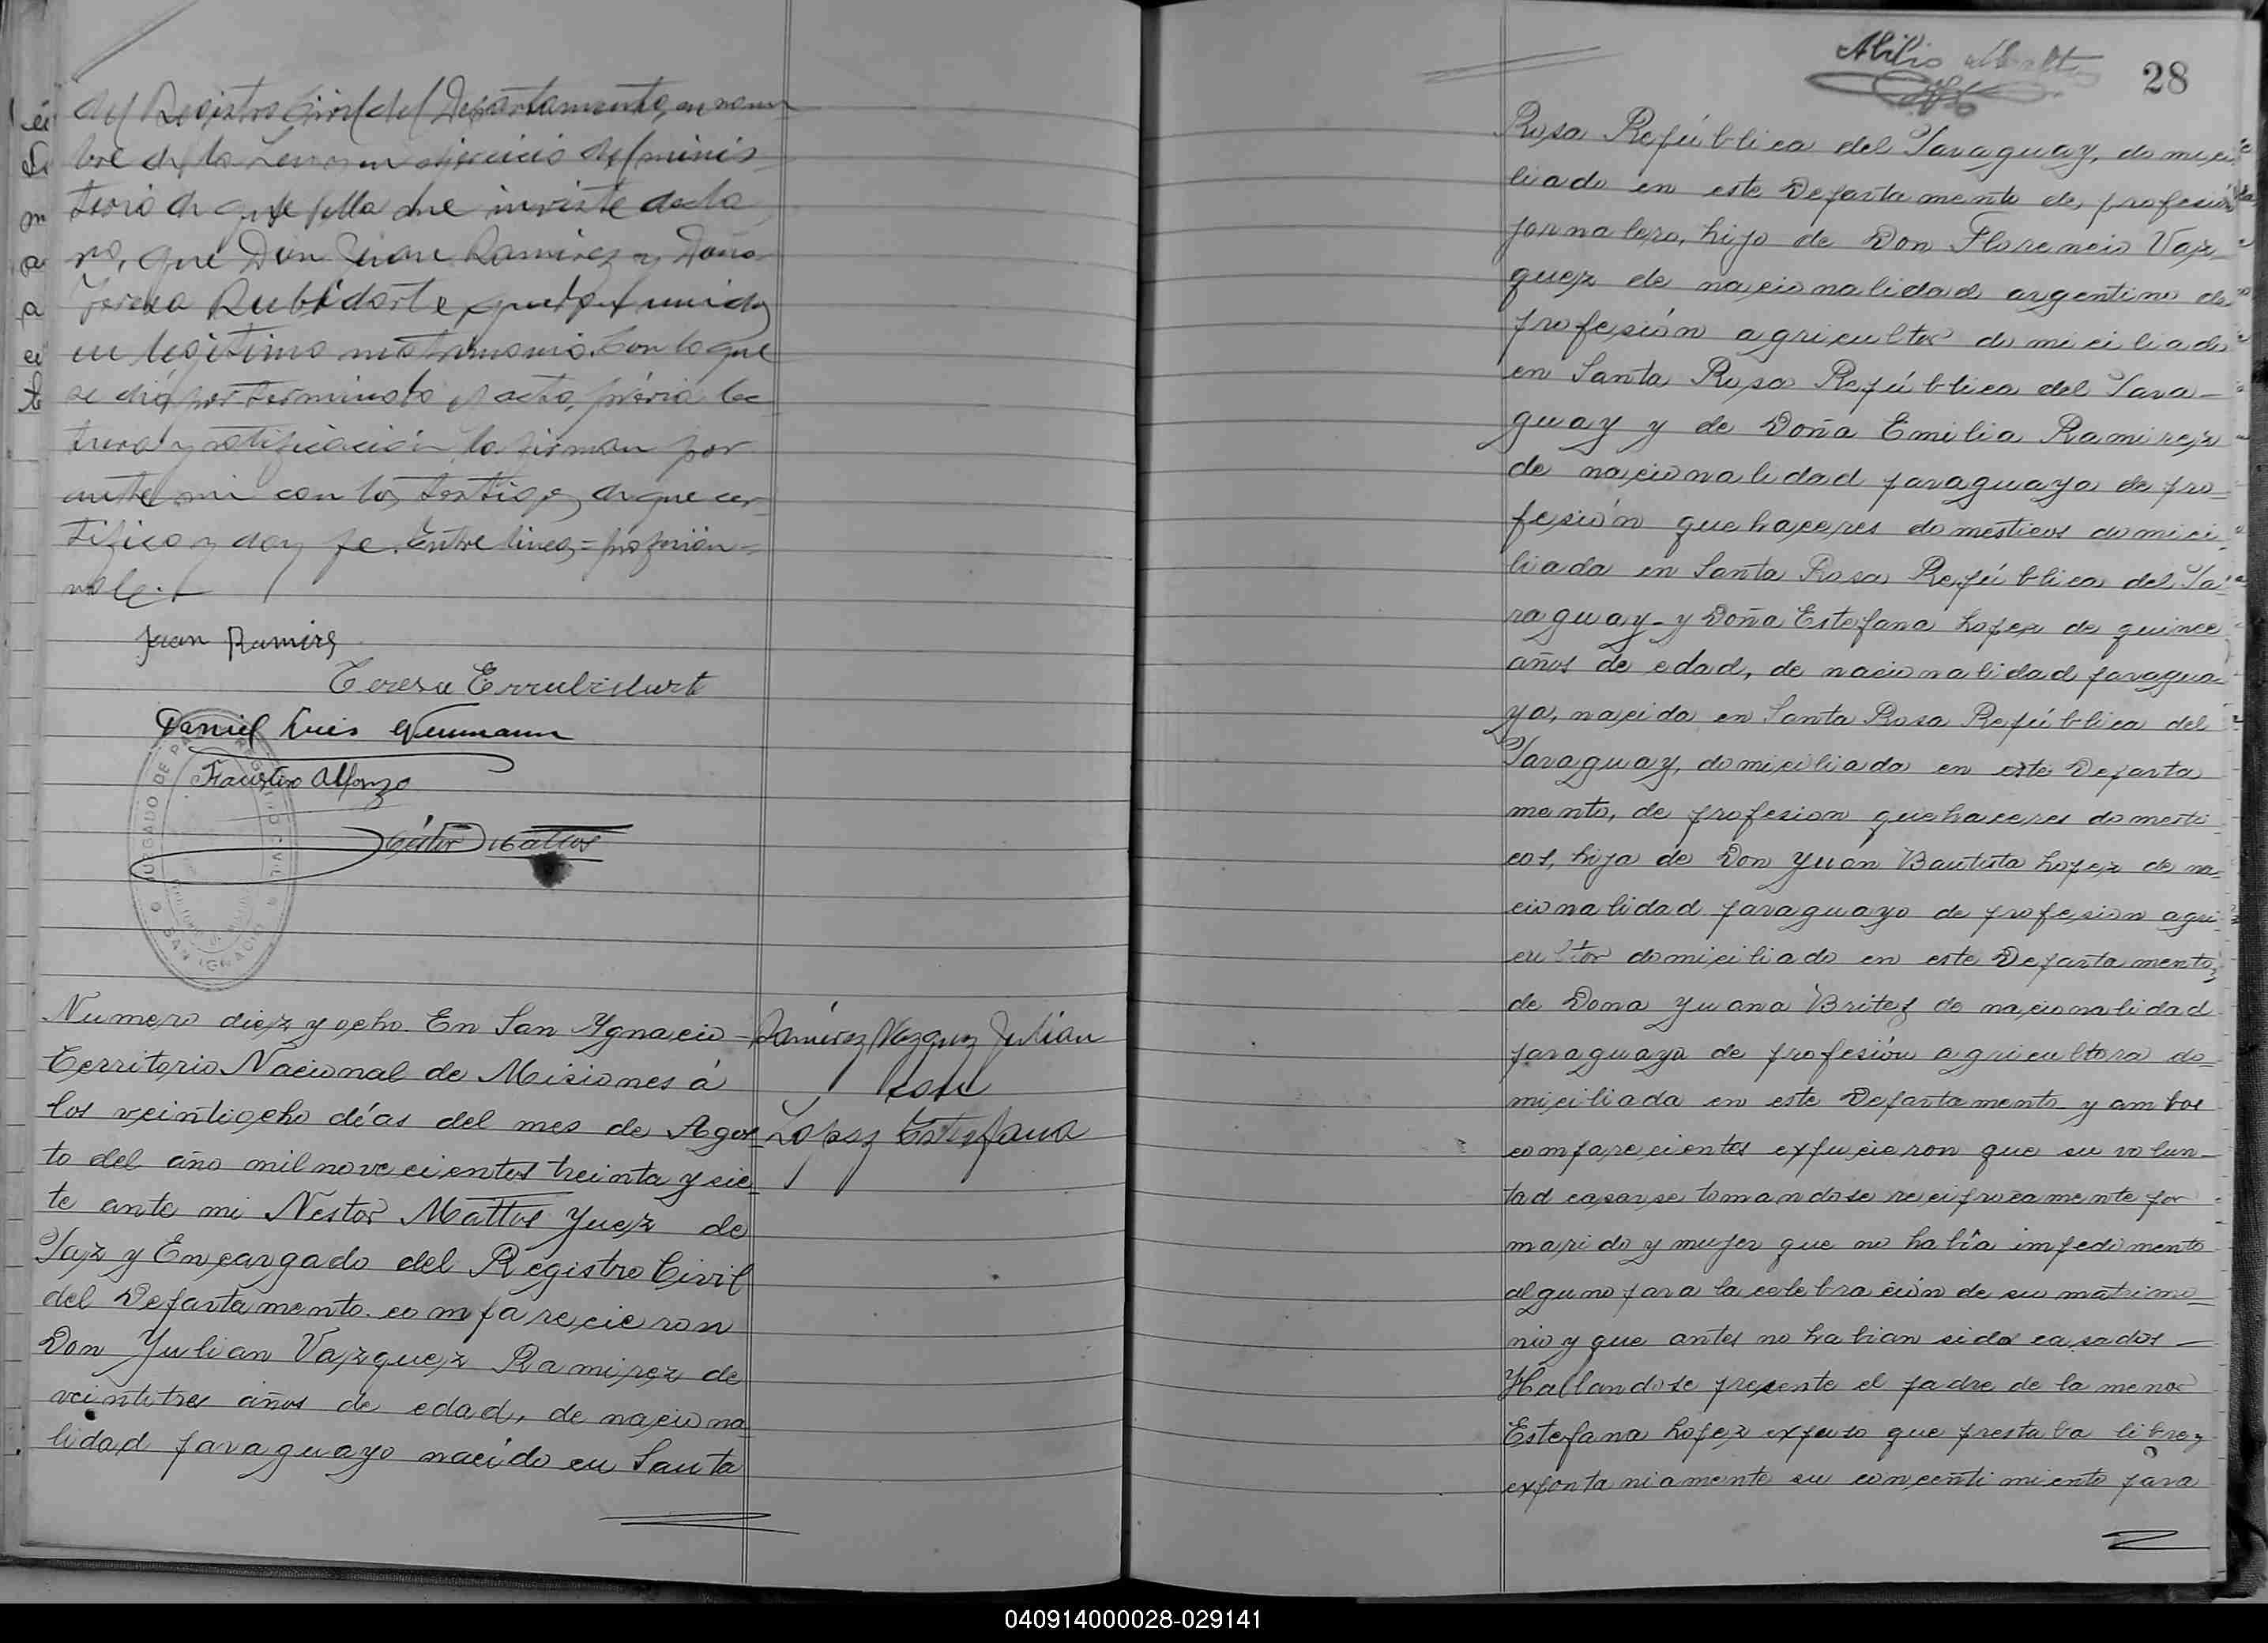 del Registro Civil del Departamento, en nom
bre de la Ley y en ejercicio del minis-
terio de que ella me inviste decla
ro, que Don Juan Ramirez y Doña
Teresa Rubidarte quedan unidos
en legitimo matrimonio. Con lo que
se dió por terminado el acto, prévia lec
tura y ratificación, la firman por
ante mi con los testigos, de que cer-
tifico y doy fe. Entre lineas = profesión =
vale.
Juan Ramires
Teresa Errubidarte
Daniel Luis Neumann
Faustino Alfonzo
Néstor Mattos
JUZGADO DE PAZ REGISTRO CIVIL
SAN IGNACIO
Numero diez y ocho. En San Ygnacio
Territorio Nacional de Misiones á
los veintiocho días del mes de Agos
to del año mil novecientos treinta y sie
te ante mi Nestor Mattos Yuez de
Paz y Encargado del Registro Civil
del Departamento. comparecieron
Don Yulian Vazquez Ramirez de
veintitres años de edad, de naciona
lidad paraguayo nacido en Santa
Ramírez Vazquez Julian
con
López Estefana
Abilio
28
Rosa República del Paraguay, domici
liado en este Departamento de, profesión
jornalero, hijo de Don Florencio Vaz
quez de nacionalidad argentino de
profesión agricultor domiciliado
en Santa Rosa República del Para-
guay y de Doña Emilia Ramirez
de nacionalidad paraguaya de pro-
fesión quehaceres domesticos domici
liada en Santa Rosa República del Pa
raguay- y Doña Estefana Lopez de quince
años de edad, de nacionalidad paragua-
ya, nacida en Santa Rosa República del
Paraguay, domiciliada en este Departa
mento, de profesion quehaceres domesti
cos, hija de Don Yuan Bautista Lopez de na-
cionalidad paraguayo de profesion agri
cultor domiciliado en este Departamento,
de Dona Yuana Britez de nacionalidad
paraguaya de profesión agricultora do-
miciliada en este Departamento y ambos
comparecientes expucieron que su volun-
tad casarse tomandose reciprocamente por
marido y mujer que no había impedimento
alguno para la celebración de su matrimo-
nio y que antes no habian sido casados -
Hallandose presente el padre de la menor
Estefana Lopez expuso que prestaba libre y
expontaniamente su concentimiento para
040914000028-029141